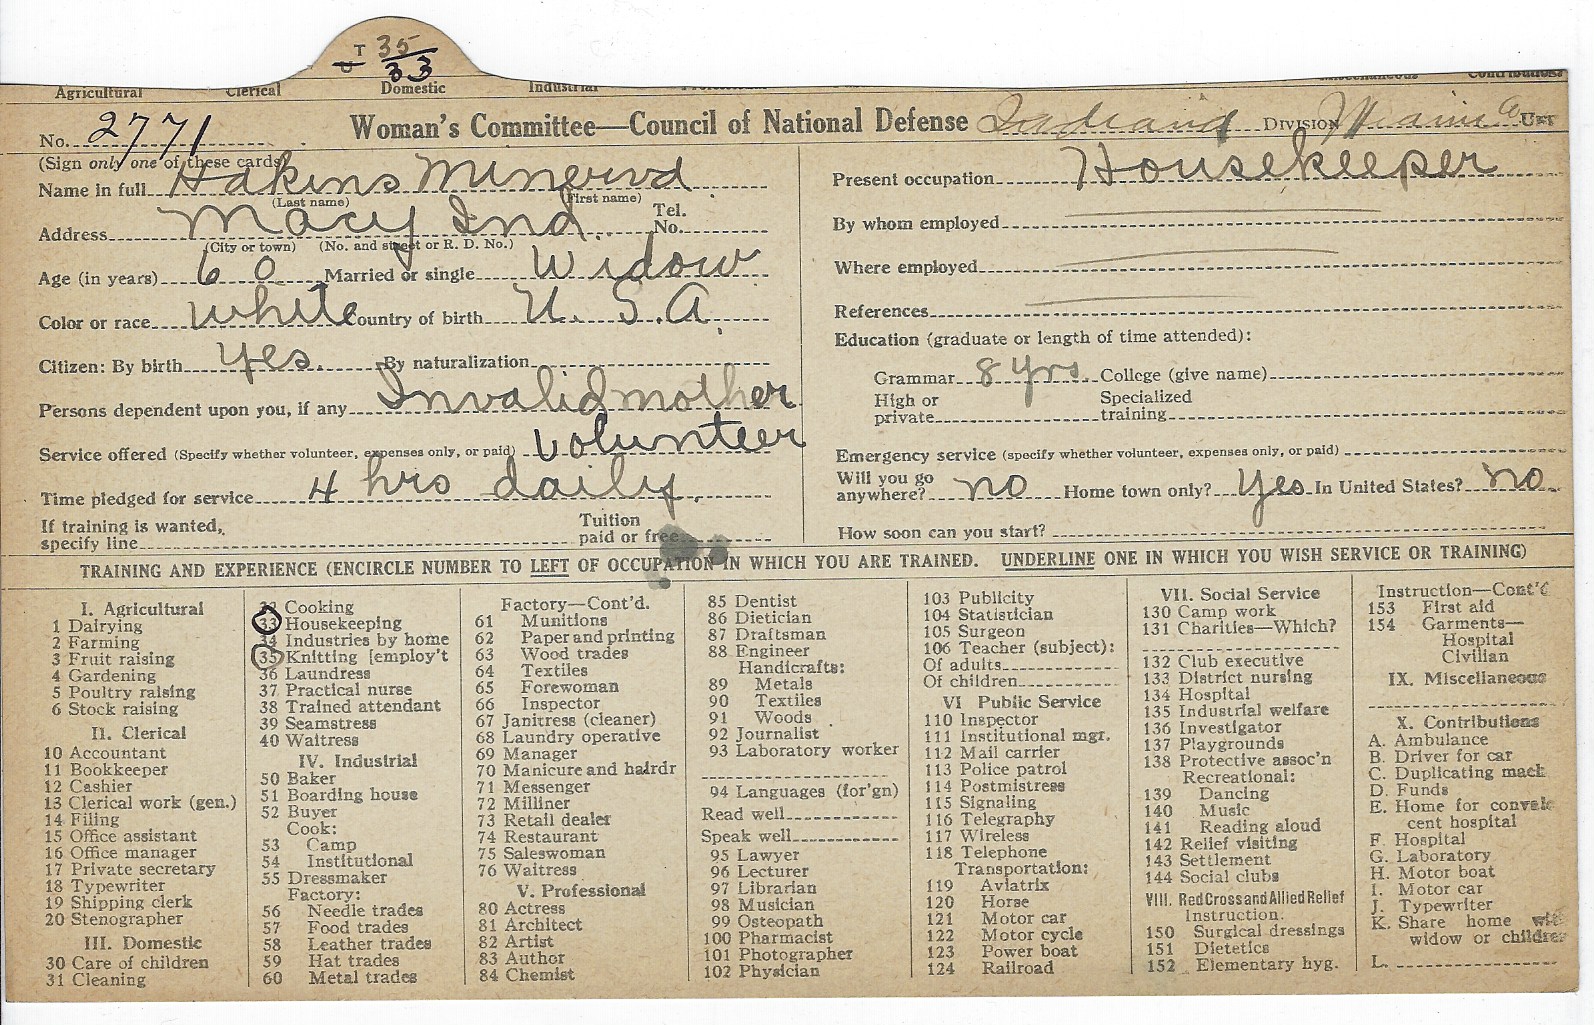 T 35
33
Agricultural Clerical Domestic Industrial
No. 2771 Woman's Committee—Council of National Defense Indiana DIVISION Miami Co UNIT
(Sign only one of these cards)
Name in full Adkins Minerva
(Last name) (First name)
Address Macy Ind. Tel. No.
(City or town) (No. and street or R. D. No.)
Age (in years) 60 Married or single Widow
Color or race White Country of birth U. S. A.
Citizen: By birth Yes. By naturalization
Persons dependent upon you, if any Invalid mother
Service offered (Specify whether volunteer, expenses only, or paid) Volunteer
Time pledged for service 4 hrs daily.
If training is wanted, specify line Tuition paid or free
Present occupation Housekeeper
By whom employed
Where employed
References
Education (graduate or length of time attended):
Grammar 8 yrs. College (give name)
High or private Specialized training
Emergency service (specify whether volunteer, expenses only, or paid)
Will you go anywhere? no Home town only? Yes In United States? no
How soon can you start?
TRAINING AND EXPERIENCE (ENCIRCLE NUMBER TO LEFT OF OCCUPATION IN WHICH YOU ARE TRAINED. UNDERLINE ONE IN WHICH YOU WISH SERVICE OR TRAINING)
I. Agricultural
1 Dairying
2 Farming
3 Fruit raising
4 Gardening
5 Poultry raising
6 Stock raising
II. Clerical
10 Accountant
11 Bookkeeper
12 Cashier
13 Clerical work (gen.)
14 Filing
15 Office assistant
16 Office manager
17 Private secretary
18 Typewriter
19 Shipping clerk
20 Stenographer
III. Domestic
30 Care of children
31 Cleaning
32 Cooking
33 Housekeeping
34 Industries by home
35 Knitting [employ't
36 Laundress
37 Practical nurse
38 Trained attendant
39 Seamstress
40 Waitress
IV. Industrial
50 Baker
51 Boarding house
52 Buyer
Cook:
53 Camp
54 Institutional
55 Dressmaker
Factory:
56 Needle trades
57 Food trades
58 Leather trades
59 Hat trades
60 Metal trades
Factory—Cont'd.
61 Munitions
62 Paper and printing
63 Wood trades
64 Textiles
65 Forewoman
66 Inspector
67 Janitress (cleaner)
68 Laundry operative
69 Manager
70 Manicure and hairdr
71 Messenger
72 Milliner
73 Retail dealer
74 Restaurant
75 Saleswoman
76 Waitress
V. Professional
80 Actress
81 Architect
82 Artist
83 Author
84 Chemist
85 Dentist
86 Dietician
87 Draftsman
88 Engineer
Handicrafts:
89 Metals
90 Textiles
91 Woods
92 Journalist
93 Laboratory worker
94 Languages (for'gn)
Read well
Speak well
95 Lawyer
96 Lecturer
97 Librarian
98 Musician
99 Osteopath
100 Pharmacist
101 Photographer
102 Physician
103 Publicity
104 Statistician
105 Surgeon
106 Teacher (subject):
Of adults
Of children
VI Public Service
110 Inspector
111 Institutional mgr.
112 Mail carrier
113 Police patrol
114 Postmistress
115 Signaling
116 Telegraphy
117 Wireless
118 Telephone
Transportation:
119 Aviatrix
120 Horse
121 Motor car
122 Motor cycle
123 Power boat
124 Railroad
VII. Social Service
130 Camp work
131 Charities—Which?
132 Club executive
133 District nursing
134 Hospital
135 Industrial welfare
136 Investigator
137 Playgrounds
138 Protective assoc'n
Recreational:
139 Dancing
140 Music
141 Reading aloud
142 Relief visiting
143 Settlement
144 Social clubs
VIII. Red Cross and Allied Relief
Instruction.
150 Surgical dressings
151 Dietetics
152 Elementary hyg.
Instruction—Cont'd
153 First aid
154 Garments—
Hospital
Civilian
IX. Miscellaneous
X. Contributions
A. Ambulance
B. Driver for car
C. Duplicating mach
D. Funds
E. Home for convales
cent hospital
F. Hospital
G. Laboratory
H. Motor boat
I. Motor car
J. Typewriter
K. Share home with
widow or children
L.